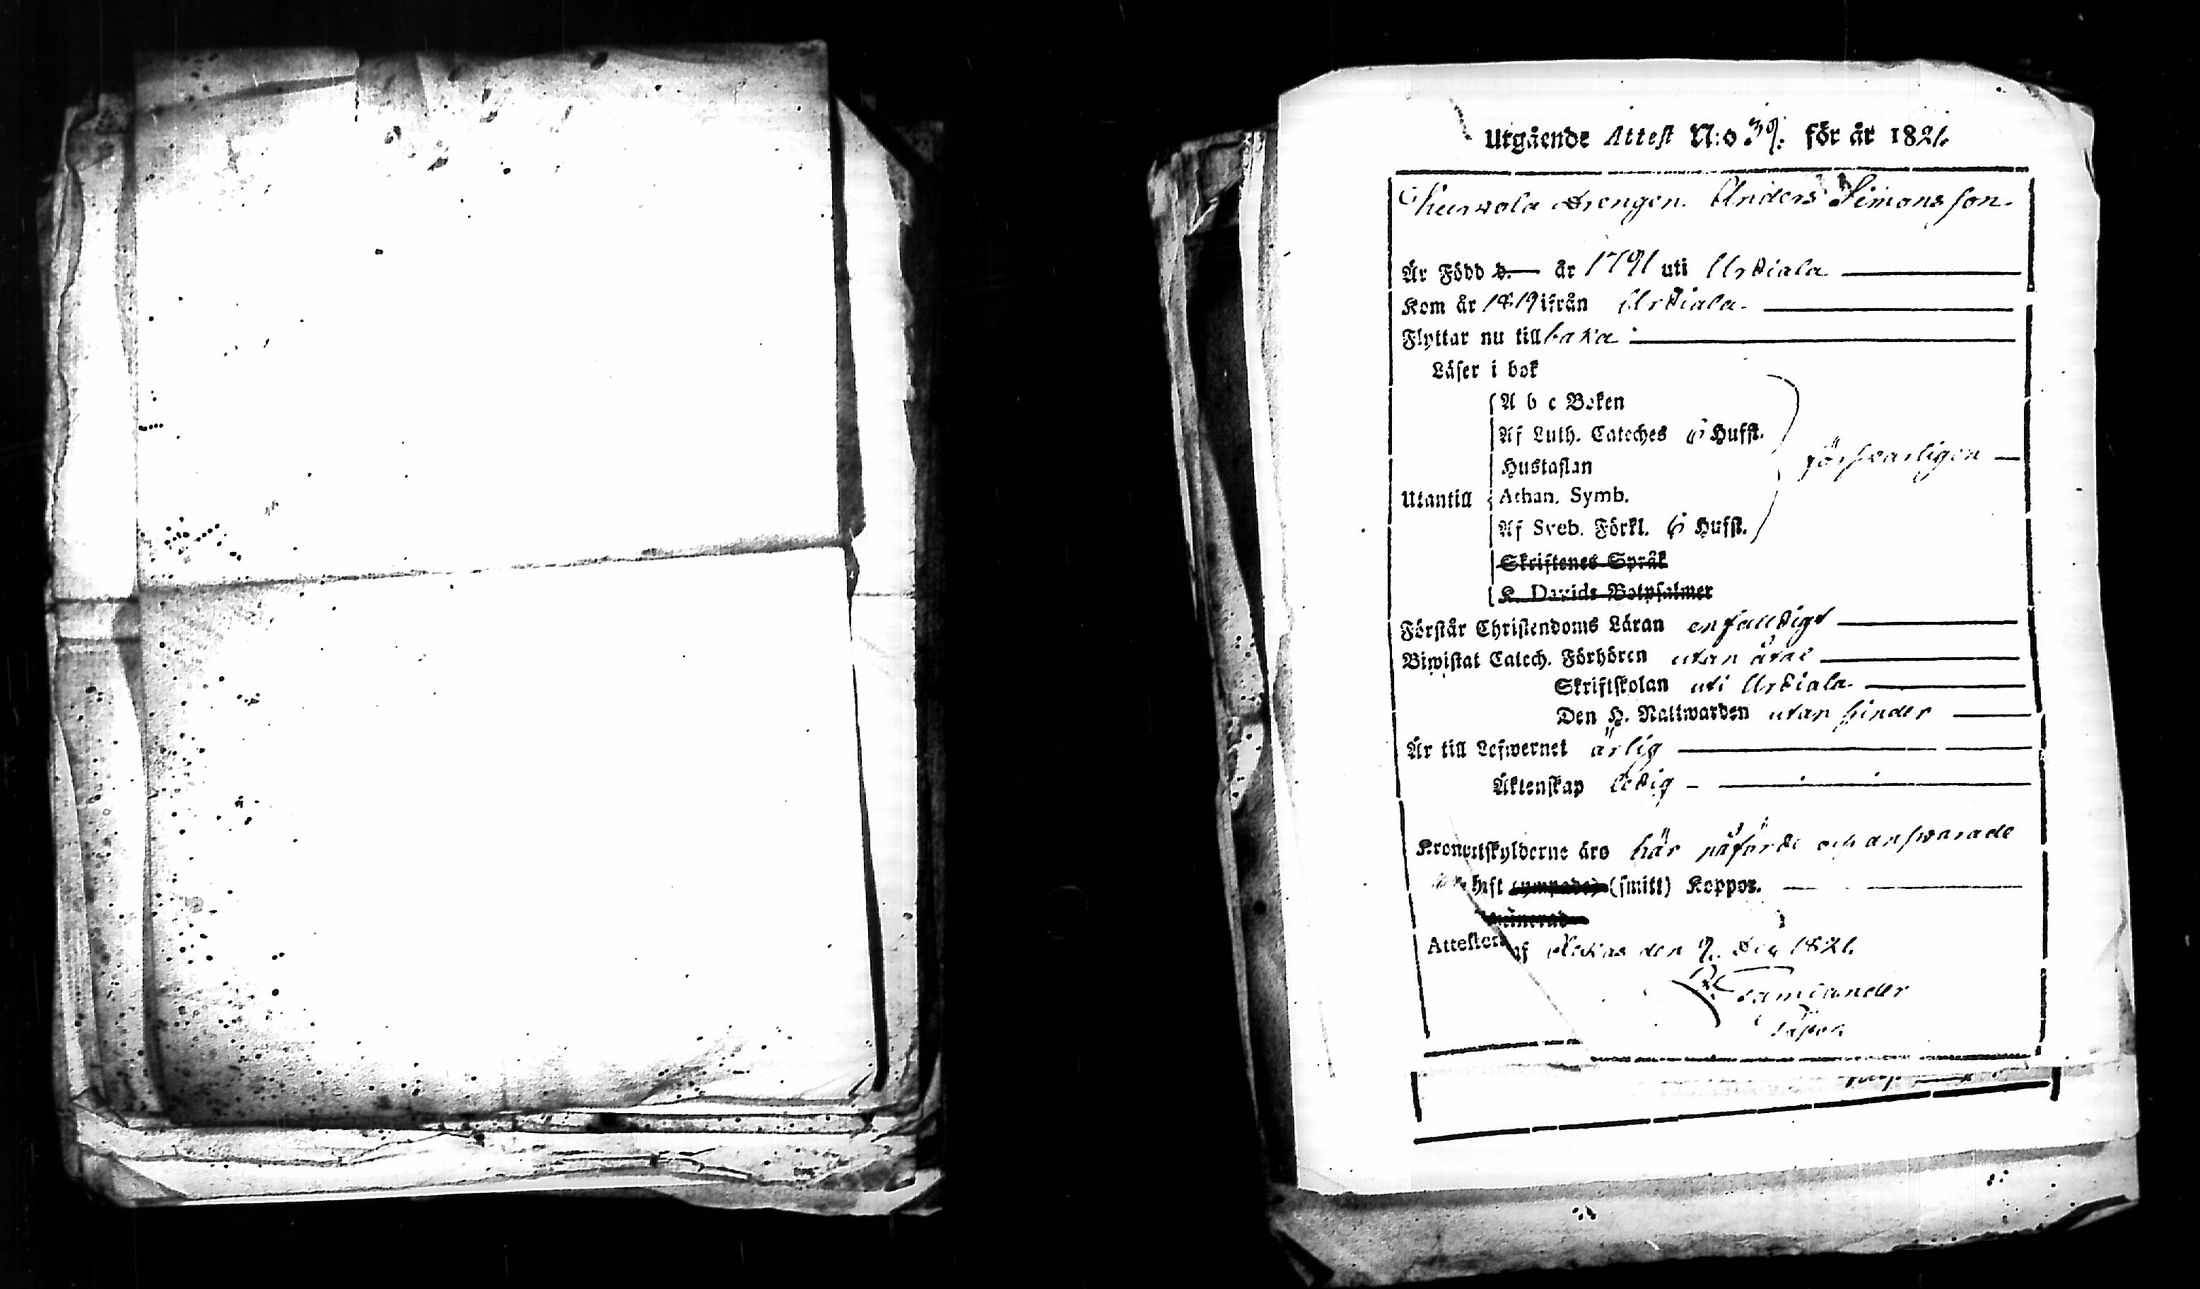 Utgående Attest N:o 39. för år 1821.
drengen Anders Simonsson.
Är Född d. år 1791 uti Urdiala
Kom år 1819 ifrån Urdiala.
Flyttar nu tillbaka
Läser i bok
A b c Boken
Af Luth. Cateches 6 Hufst.
Hustaflan
försvarligen
Utantill
Athan. Symb.
Af Sveb. Förkl. 6 Hufst.
Skriftenes Språk
K. Davids Botpsalmer
Förstår Christendoms Läran enfaldigt
Biwistat Catech. Förhören utan åtal
Skriftskolan uti Urdiala
Den H. Nattwarden utan hinder
Är till Lefwernet ärlig
Äktenskap ledig
Kronoutskylderne äro här påförde och answarade
haft (ympade) (smitt) Koppor.
Attesteras af den 9. 1821.